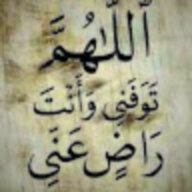 ٱللَّٰهُمَّ
تَوَفَنِي وَأَنْتَ
رَاضٍ عَنِّي